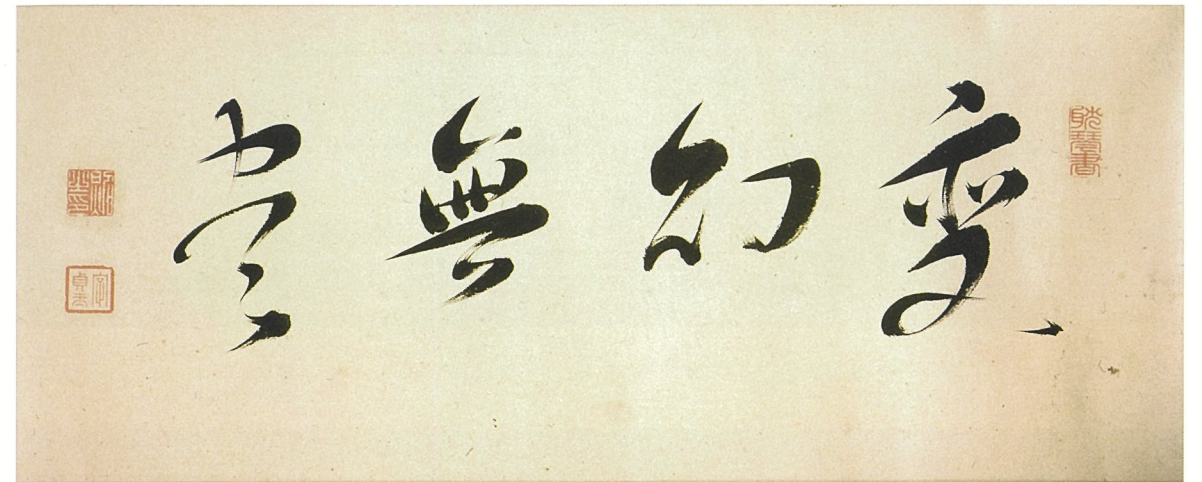 變幻無盡